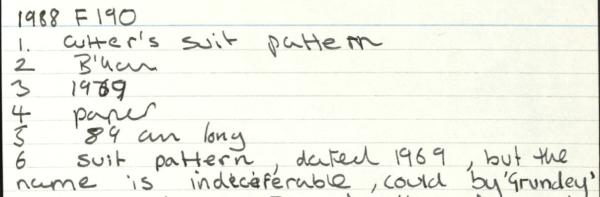 1988 F 190
1. cutter's suit pattern
2 B'ham
3 1969
4 paper
5 89 cm long
6 suit pattern, dated 1969, but the
name is indeceferable, could by 'Grundey'